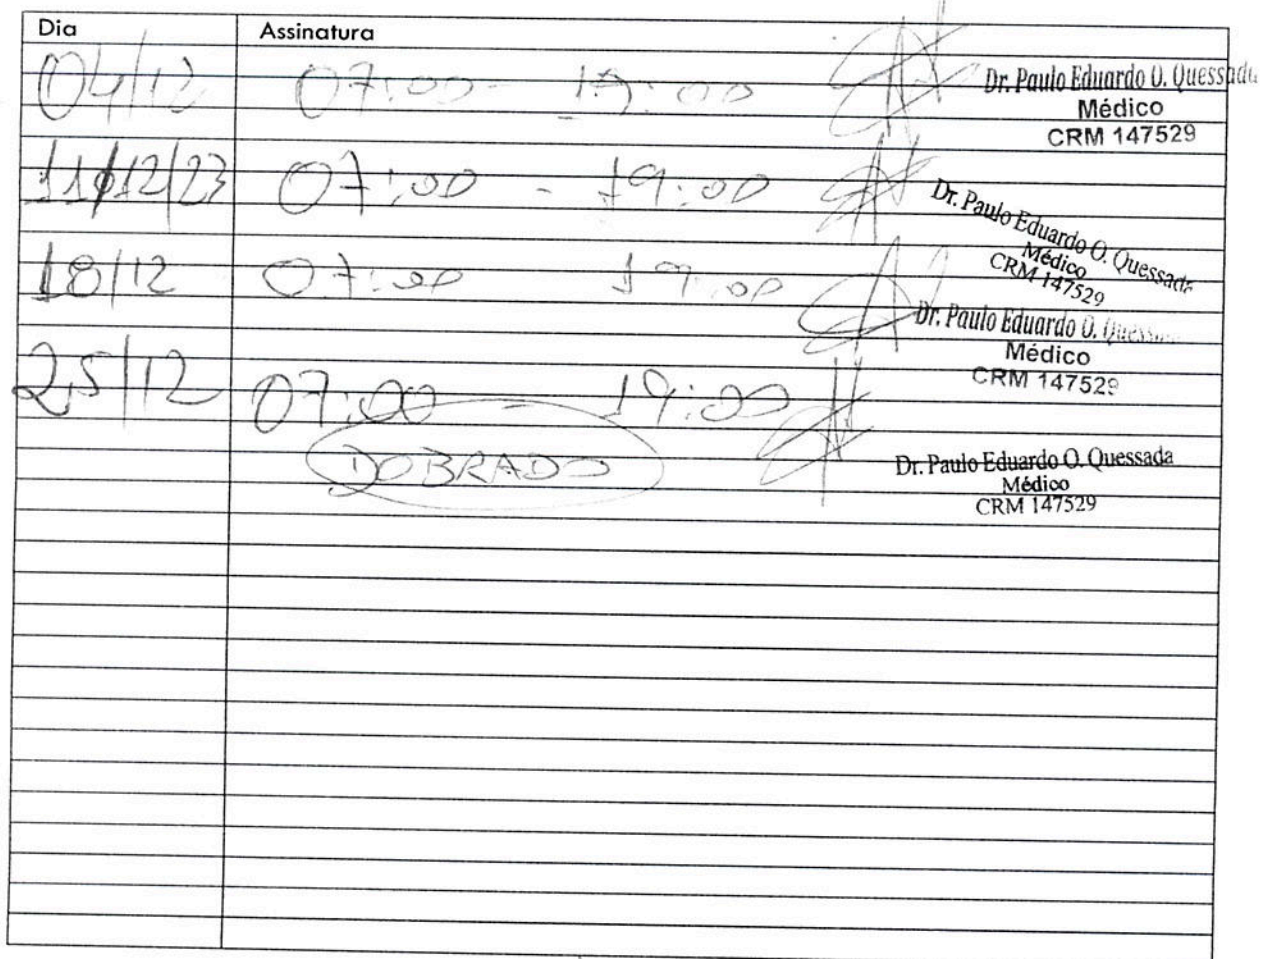 Dia Assinatura
04/12 07:00 - 19:00 Dr. Paulo Eduardo O. Quessada
Médico
CRM 147529
11/12/23 07:00 - 19:00 Dr. Paulo Eduardo O. Quessada
Médico
CRM 147529
18/12 07:00 19:00 Dr. Paulo Eduardo O. Quessada
Médico
CRM 147529
25/12 07:00 - 19:00
DOBRADO Dr. Paulo Eduardo O. Quessada
Médico
CRM 147529